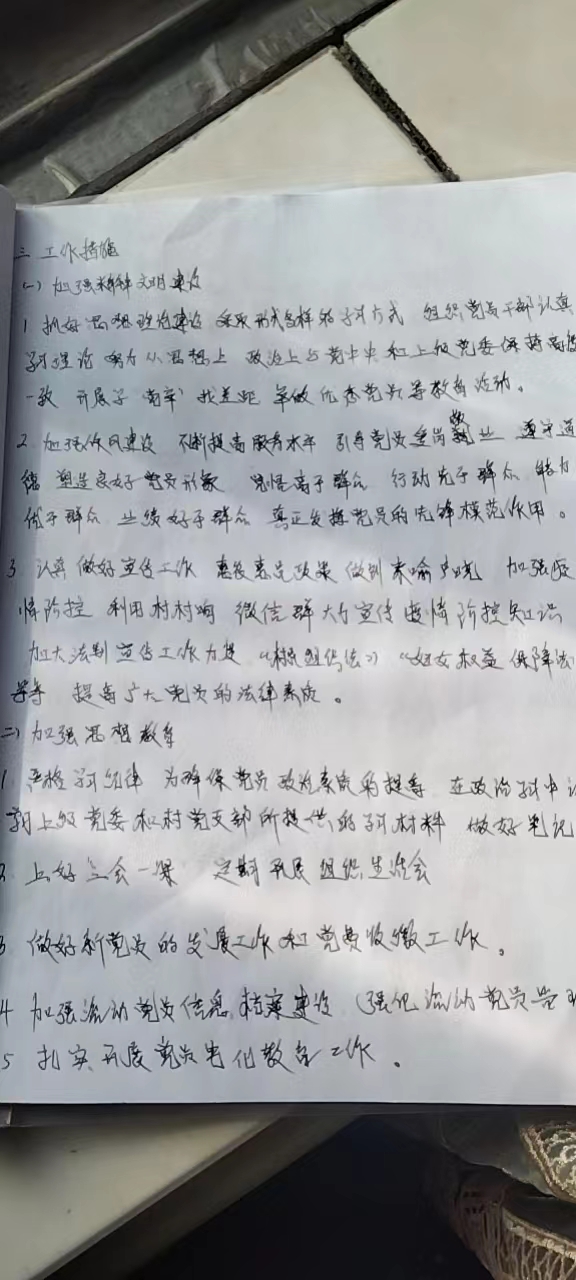 三 工作措施
(一) 加强精神文明建设
1 抓好思想理论建设 采取形式多样的学习方式 组织党员干部认真
学习理论 努力从思想上 政治上与党中央和上级党委保持高度
一致 开展学 党章 找差距 争做优秀党员等教育活动。
2 加强作风建设 不断提高服务水平 引导党员爱岗敬业 遵守道
德 塑造良好党员形象 思想高于群众 行动先于群众 能力
优于群众 业绩好于群众 真正发挥党员的先锋模范作用。
3 认真做好宣传工作 惠农惠民政策 做到家喻户晓 加强疫
情防控 利用村村响 微信群大力宣传疫情防控知识
加大法制宣传工作力度 《妇女权益保障法
等等 提高广大党员的法律素质。
二) 加强思想教育
1 严格学习纪律 为确保党员政治素质的提高 在政治学习中认
上级党委和村党支部所提供的学习材料 做好笔记
2 上好三会一课 定期开展组织生活会
3 做好新党员的发展工作和党费收缴工作。
4 加强流动党员信息 档案建设 (强化流动党员管理
5 扎实开展党员 教育工作。